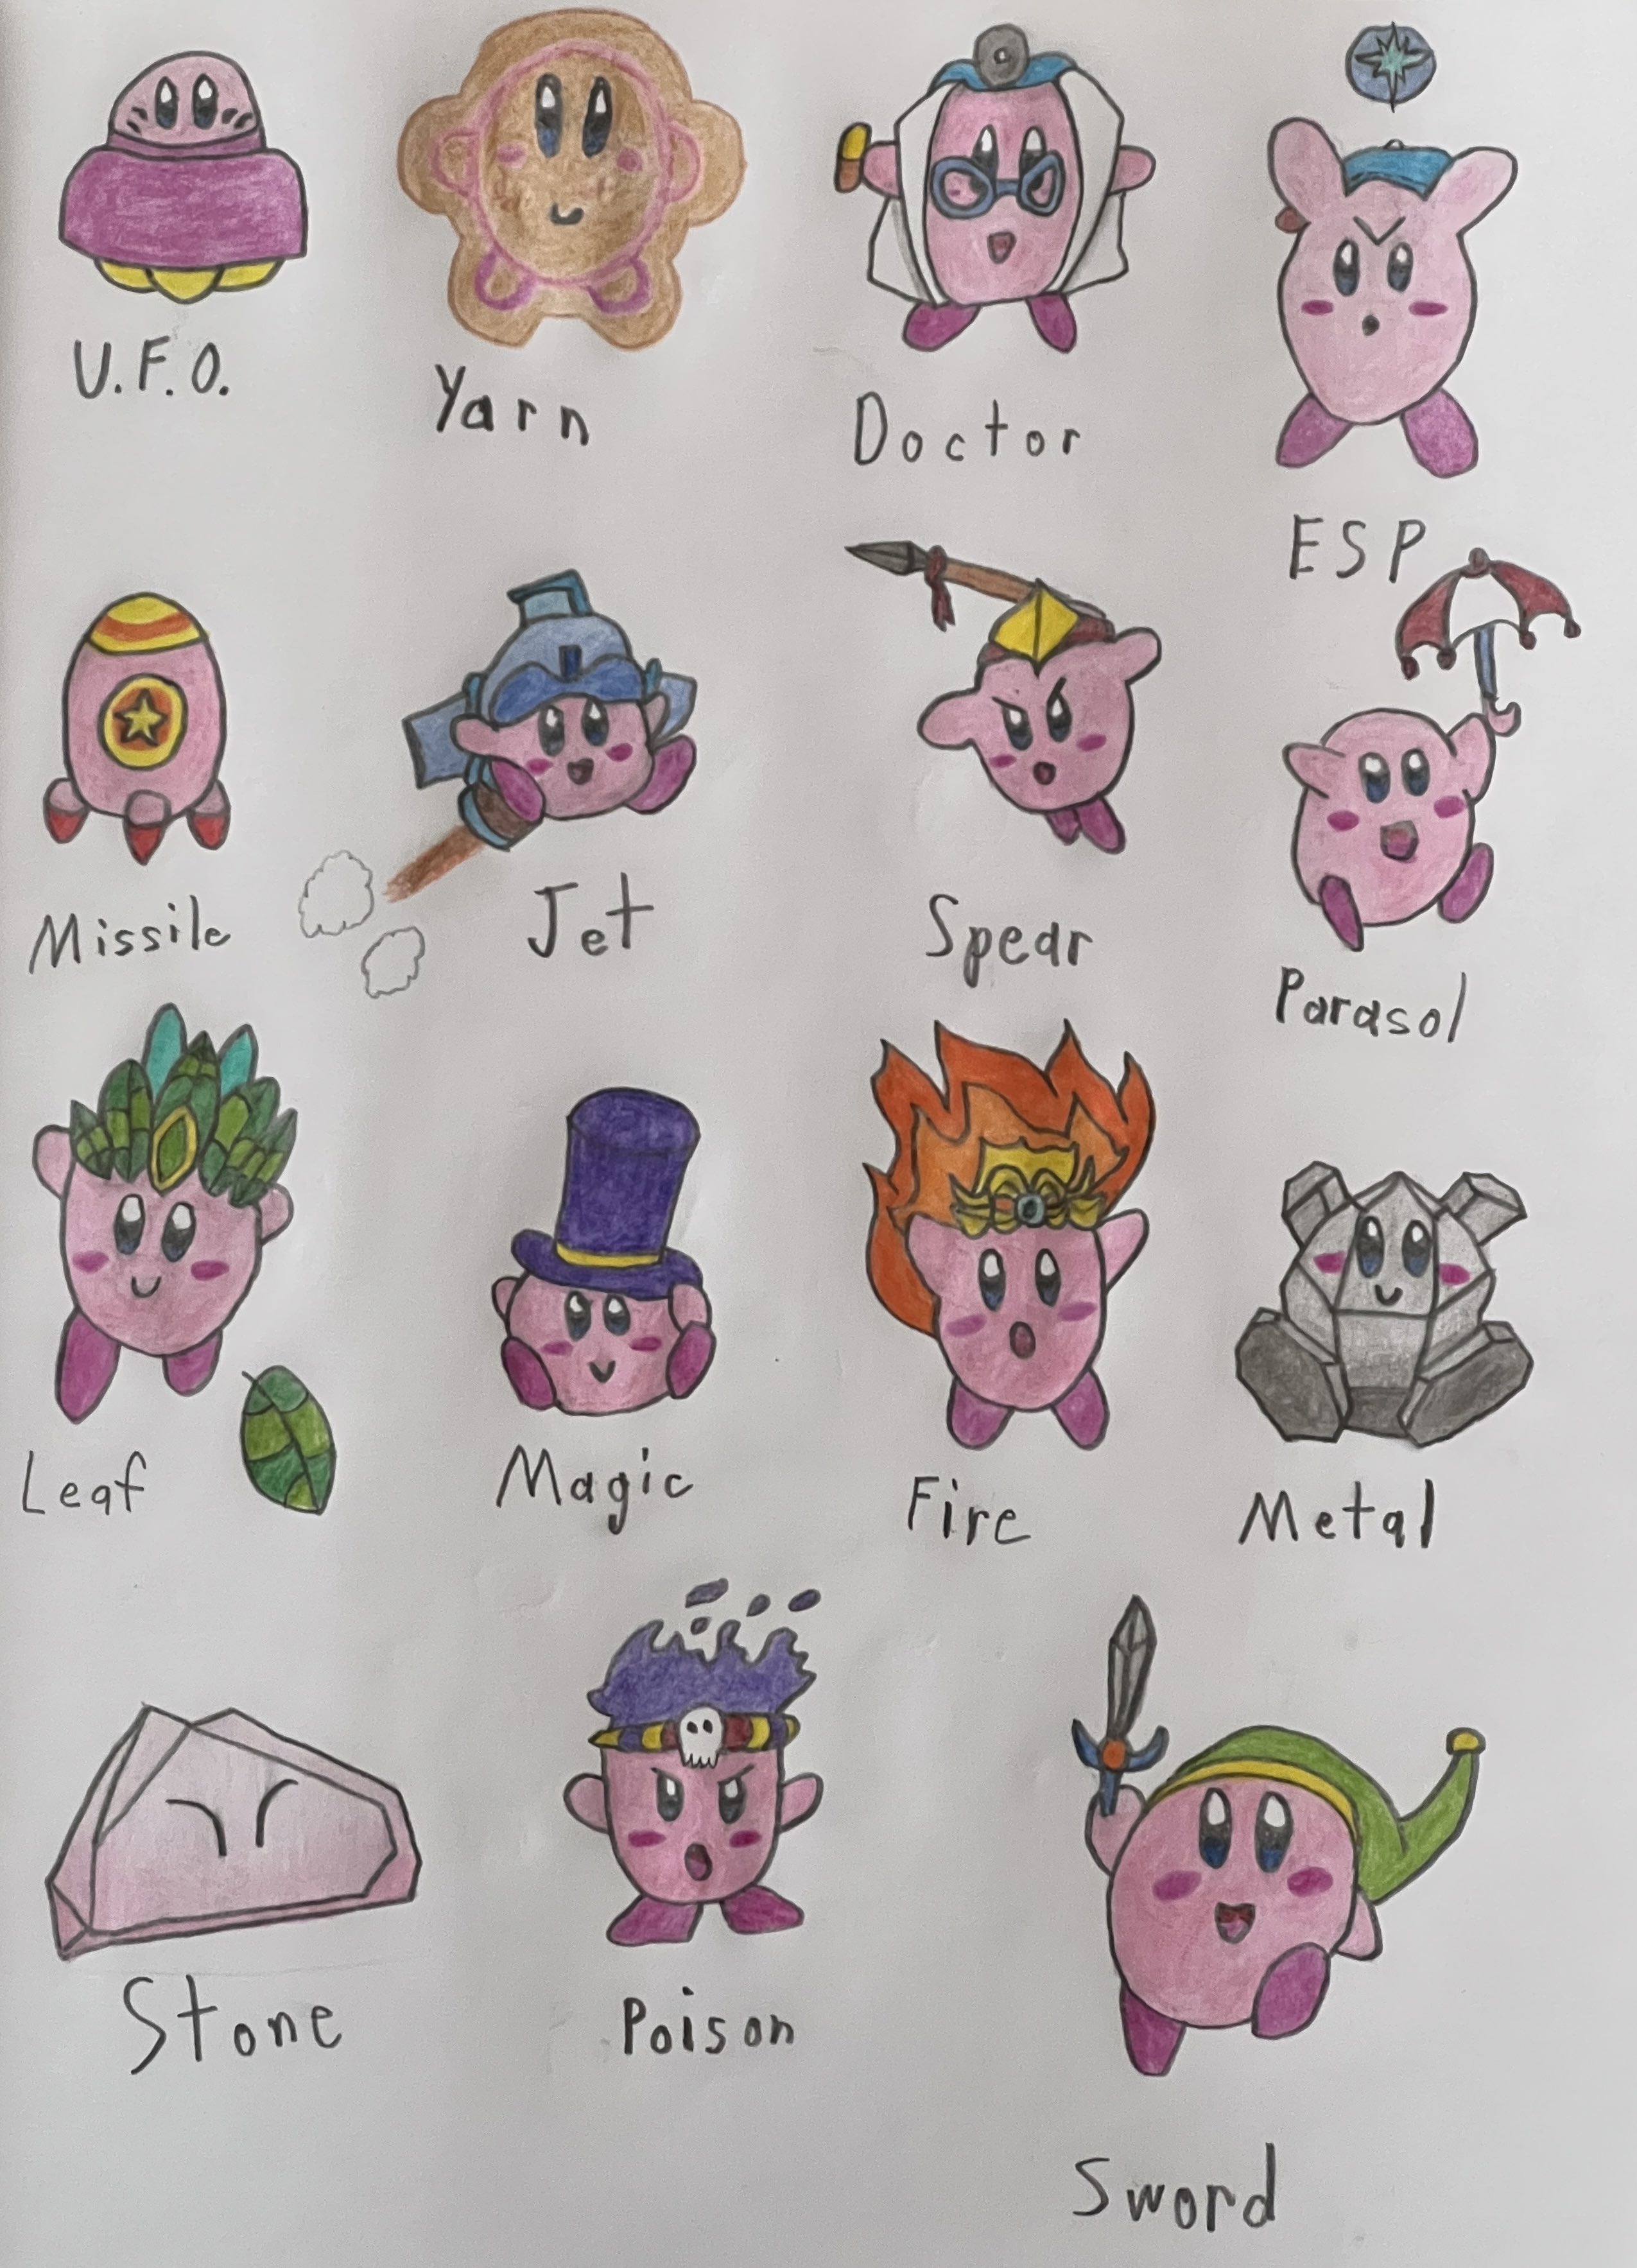 U.F.O.
Yarn
Doctor
ESP
Missile
Jet
Spear
Parasol
Leaf
Magic
Fire
Metal
Stone
Poison
Sword